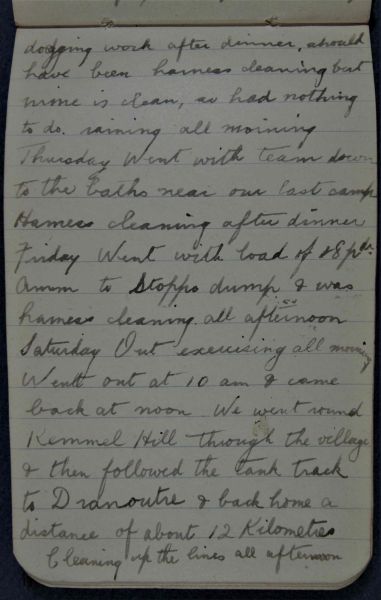 dodging work after dinner, should
have been harness cleaning but
mine is clean, so had nothing
to do. raining all morning
Thursday Went with team down
to the baths near our last camp
Harness cleaning after dinner
Friday Went with load of 18 pdr.
Amm to Stopps dump & was
harness cleaning all afternoon
Saturday Out exercising all morning
Went out at 10 am & came
back at noon We went round
Kemmel Hill through the village
& then followed the tank track
to Dranoutre & back home a
distance of about 12 Kilometres
Cleaning up the lines all afternoon